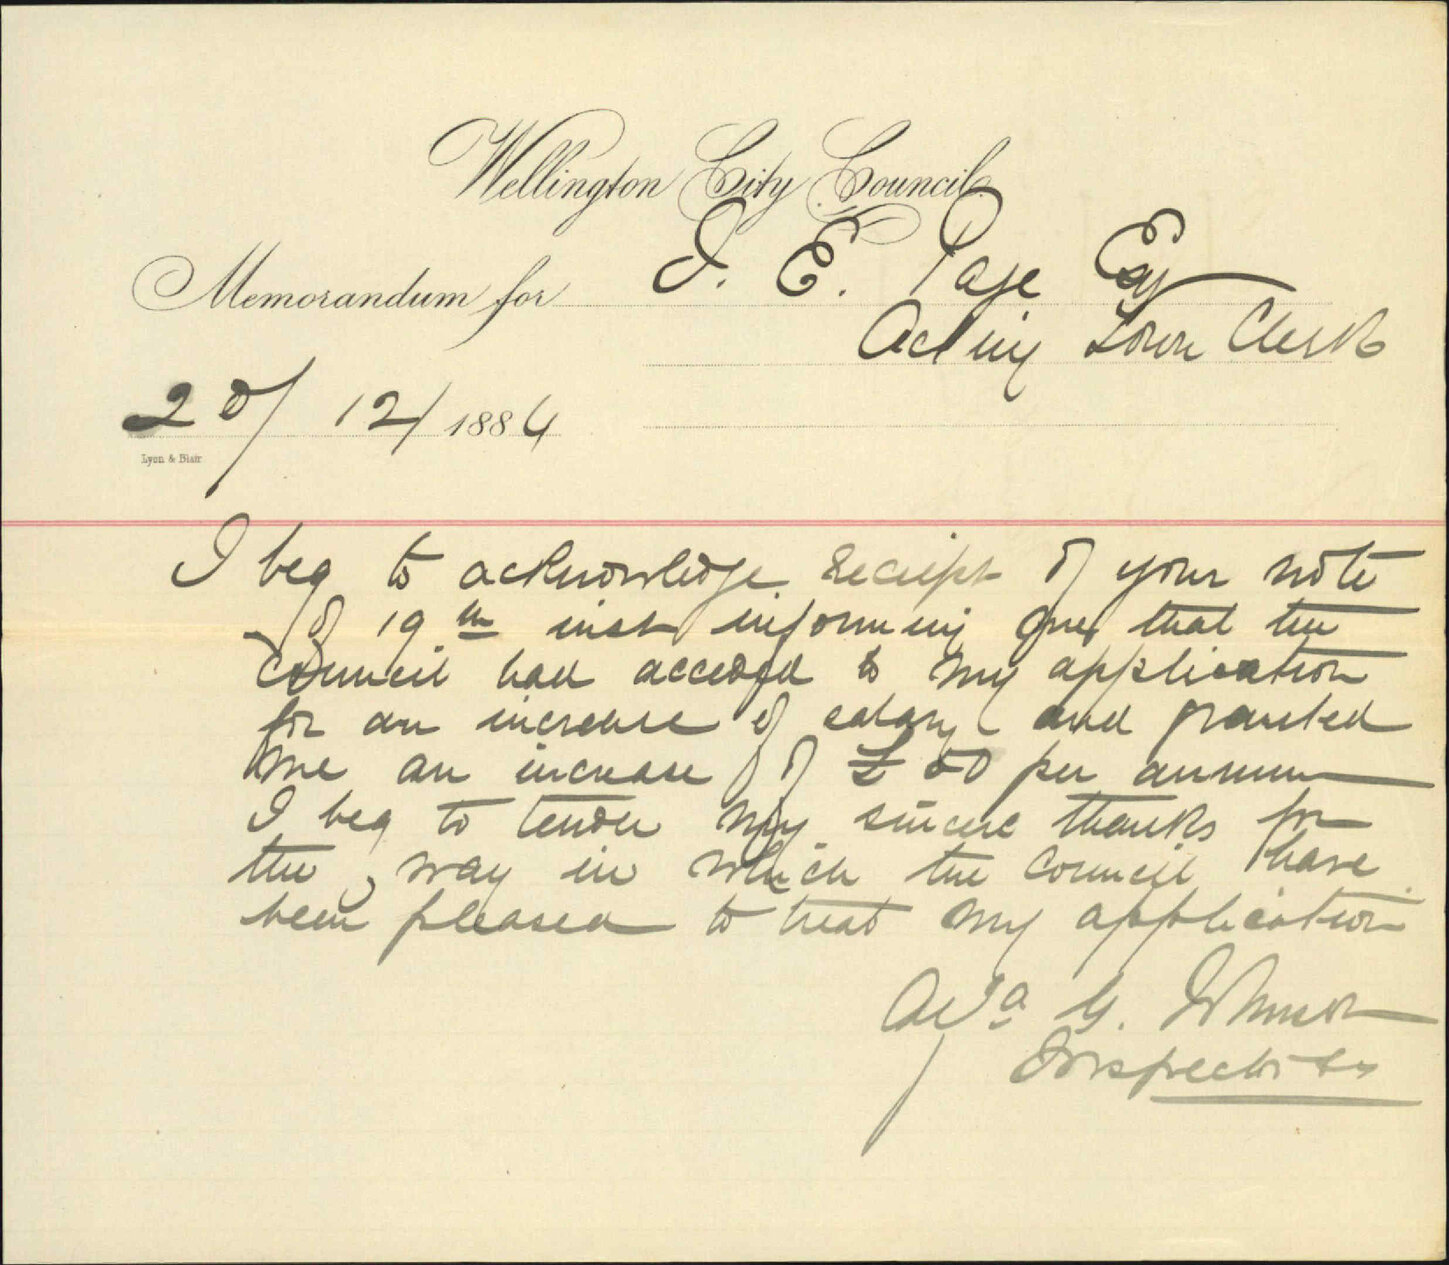 Wellington City Council.
Memorandum for J. E. Page Esq
Acting Town Clerk
20/12/1884
Lyon & Blair
I beg to acknowledge receipt of your note
of 19th inst informing me that the
Council had acceded to my application
for an increase of salary and granted
me an increase of £50 per annum
I beg to tender my sincere thanks for
the way in which the Council have
been pleased to treat my application
G. Johnson
Inspector